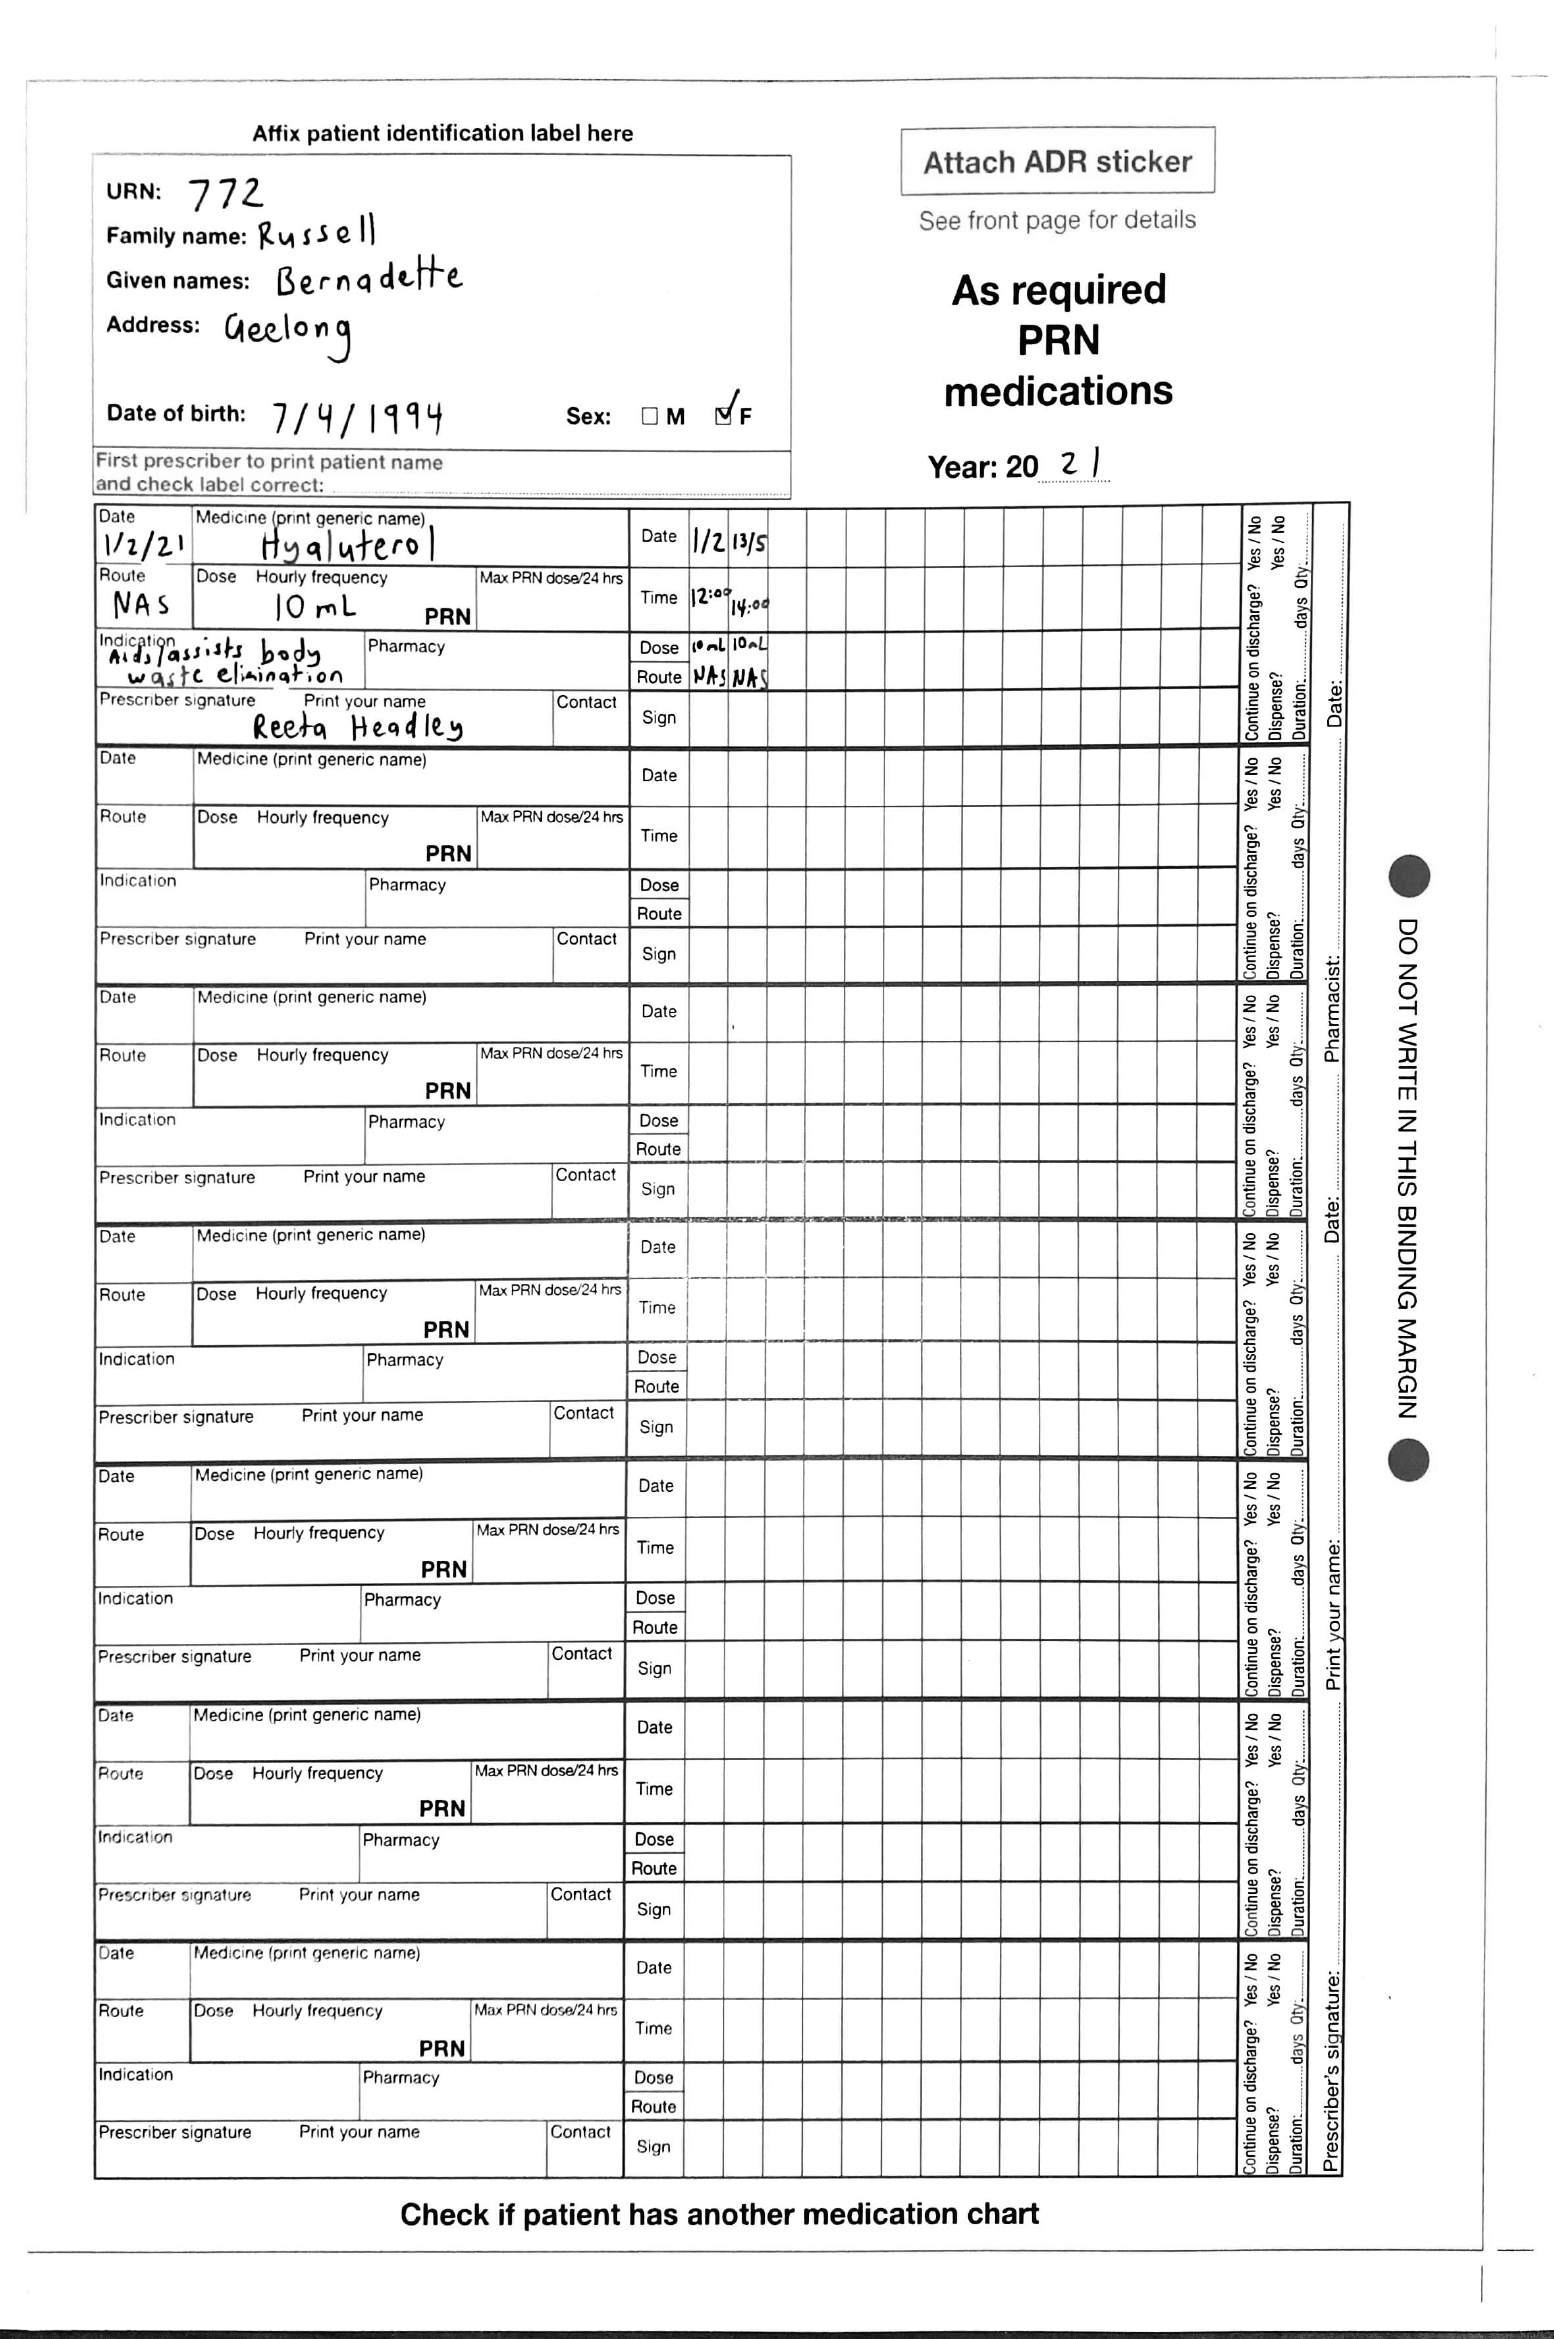 Affix patient identification label here
URN: 772
Family name: Russell
Given names: Bernadette
Address: Geelong
Date of birth: 7/4/1994 Sex: M F
First prescriber to print patient name
and check label correct:
Attach ADR sticker
See front page for details
As required
PRN
medications
Year: 20 21
Date Medicine (print generic name)
1/2/21 Hyaluterol
Route Dose Hourly frequency Max PRN dose/24 hrs
NAS 10 mL PRN
Indication Pharmacy
Aids/assists body
waste elimination
Prescriber signature Print your name Contact
Reeta Headley
Date 1/2 13/5
Time 12:00 14:00
Dose 10mL 10mL
Route NAS NAS
Sign
Continue on discharge? Yes / No
Dispense? Yes / No
Duration: days Qty:
Date Medicine (print generic name)
Route Dose Hourly frequency Max PRN dose/24 hrs
PRN
Indication Pharmacy
Prescriber signature Print your name Contact
Date
Time
Dose
Route
Sign
Continue on discharge? Yes / No
Dispense? Yes / No
Duration: days Qty:
Date Medicine (print generic name)
Route Dose Hourly frequency Max PRN dose/24 hrs
PRN
Indication Pharmacy
Prescriber signature Print your name Contact
Date
Time
Dose
Route
Sign
Continue on discharge? Yes / No
Dispense? Yes / No
Duration: days Qty:
Date Medicine (print generic name)
Route Dose Hourly frequency Max PRN dose/24 hrs
PRN
Indication Pharmacy
Prescriber signature Print your name Contact
Date
Time
Dose
Route
Sign
Continue on discharge? Yes / No
Dispense? Yes / No
Duration: days Qty:
Date Medicine (print generic name)
Route Dose Hourly frequency Max PRN dose/24 hrs
PRN
Indication Pharmacy
Prescriber signature Print your name Contact
Date
Time
Dose
Route
Sign
Continue on discharge? Yes / No
Dispense? Yes / No
Duration: days Qty:
Date Medicine (print generic name)
Route Dose Hourly frequency Max PRN dose/24 hrs
PRN
Indication Pharmacy
Prescriber signature Print your name Contact
Date
Time
Dose
Route
Sign
Continue on discharge? Yes / No
Dispense? Yes / No
Duration: days Qty:
Date Medicine (print generic name)
Route Dose Hourly frequency Max PRN dose/24 hrs
PRN
Indication Pharmacy
Prescriber signature Print your name Contact
Date
Time
Dose
Route
Sign
Continue on discharge? Yes / No
Dispense? Yes / No
Duration: days Qty:
Prescriber's signature: Print your name: Date: Pharmacist: Date:
DO NOT WRITE IN THIS BINDING MARGIN
Check if patient has another medication chart